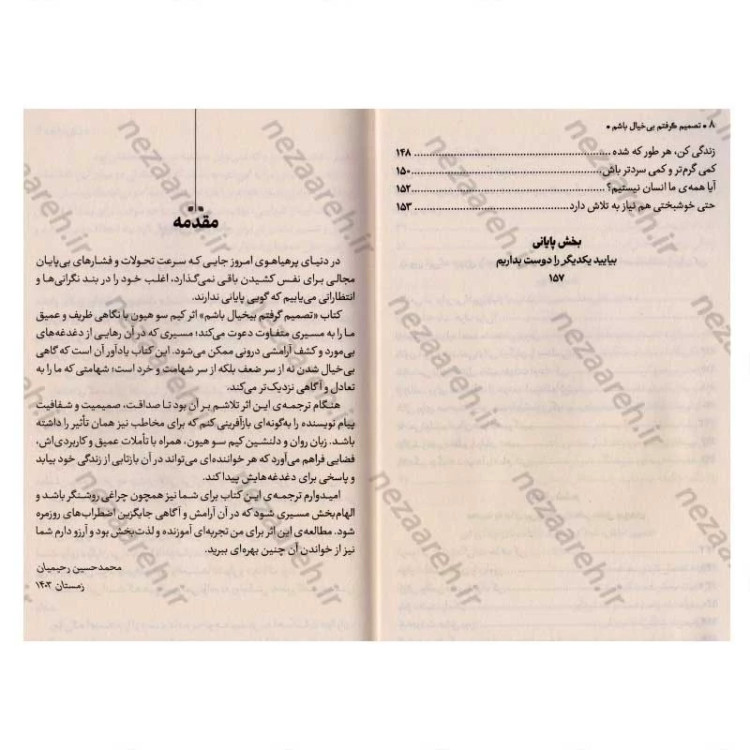 ۸ • تصمیم گرفتم بی‌خیال باشم •
زندگی کن، هر طور که شده ........ ۱۴۸
کمی گرم‌تر و کمی سردتر باش ........ ۱۵۰
آیا همه‌ی ما انسان نیستیم؟ ........ ۱۵۲
حتی خوشبختی هم نیاز به تلاش دارد ........ ۱۵۳
بخش پایانی
بیایید یکدیگر را دوست بداریم
۱۵۷
مقدمه
در دنیای پرهیاهوی امروز جایی که سرعت تحولات و فشارهای بی‌پایان
مجالی برای نفس کشیدن باقی نمی‌گذارد، اغلب خود را در بند نگرانی‌ها و
انتظاراتی می‌یابیم که گویی پایانی ندارند.
کتاب «تصمیم گرفتم بیخیال باشم» اثر کیم سو هیون با نگاهی ظریف و عمیق
ما را به مسیری متفاوت دعوت می‌کند؛ مسیری که در آن رهایی از دغدغه‌های
بی‌مورد و کشف آرامشی درونی ممکن می‌شود. این کتاب یادآور آن است که گاهی
بی‌خیال شدن نه از سر ضعف بلکه از سر شهامت و خرد است؛ شهامتی که ما را به
تعادل و آگاهی نزدیک‌تر می‌کند.
هنگام ترجمه‌ی این اثر تلاشم بر آن بود تا صداقت، صمیمیت و شفافیت
پیام نویسنده را به‌گونه‌ای بازآفرینی کنم که برای مخاطب نیز همان تأثیر را داشته
باشد. زبان روان و دلنشین کیم سو هیون، همراه با تأملات عمیق و کاربردی‌اش،
فضایی فراهم می‌آورد که هر خواننده‌ای می‌تواند در آن بازتابی از زندگی خود بیابد
و پاسخی برای دغدغه‌هایش پیدا کند.
امیدوارم ترجمه‌ی این کتاب برای شما نیز همچون چراغی روشنگر باشد و
الهام‌بخش مسیری شود که در آن آرامش و آگاهی جایگزین اضطراب‌های روزمره
شود. مطالعه‌ی این اثر برای من تجربه‌ای آموزنده و لذت‌بخش بود و آرزو دارم شما
نیز از خواندن آن چنین بهره‌ای ببرید.
محمدحسین رحیمیان
زمستان ۱۴۰۳
nezaareh.ir
nezaareh.ir
nezaareh.ir
nezaareh.ir
nezaareh.ir
nezaareh.ir
nezaareh.ir
nezaareh.ir